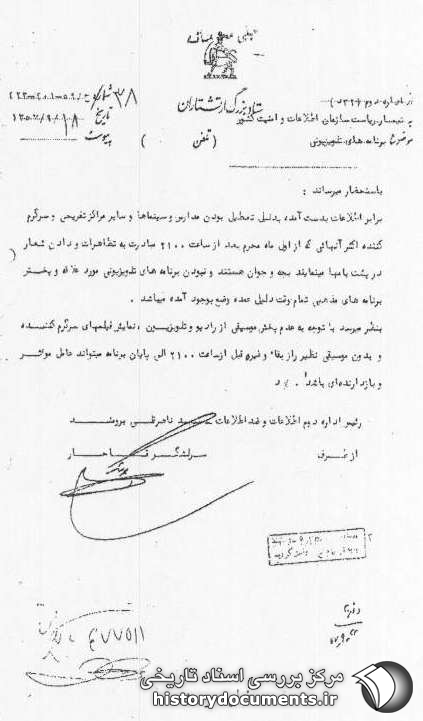 ستاد بزرگ ارتشتاران
شماره
تاریخ
پیوست
از اداره دوم
به تیمسار ریاست سازمان اطلاعات و امنیت کشور
موضوع برنامه های تلویزیونی
( تلفن )
باستحضار میرساند :
برابر اطلاعات بدست آمده بدلیل تعطیل بودن مدارس و سینماها و سایر مراکز تفریحی و سرگرم
کننده اکثر آنهائی که از اول ماه محرم بعد از ساعت ۲۱۰۰ مبادرت به تظاهرات و دادن شعار
در پشت بامها مینمایند بچه و جوان هستند و نبودن برنامه های تلویزیونی مورد علاقه و پخش
برنامه های مذهبی تمام وقت دلیل عمده وضع بوجود آمده میباشد .
بنظر میرسد با توجه به عدم پخش موسیقی از رادیو و تلویزیون ، نمایش فیلمهای سرگرم کننده
و بدون موسیقی نظیر راز بقاء و غیره قبل از ساعت ۲۱۰۰ الی پایان برنامه میتواند عامل موثر
و بازدارنده ای باشد .
رئیس اداره دوم اطلاعات و ضد اطلاعات سپهبد ناصرقلی برومند
از طرف
سرلشگر قاجار
۷۷۵۱۱
مرکز بررسی اسناد تاریخی
historydocuments.ir